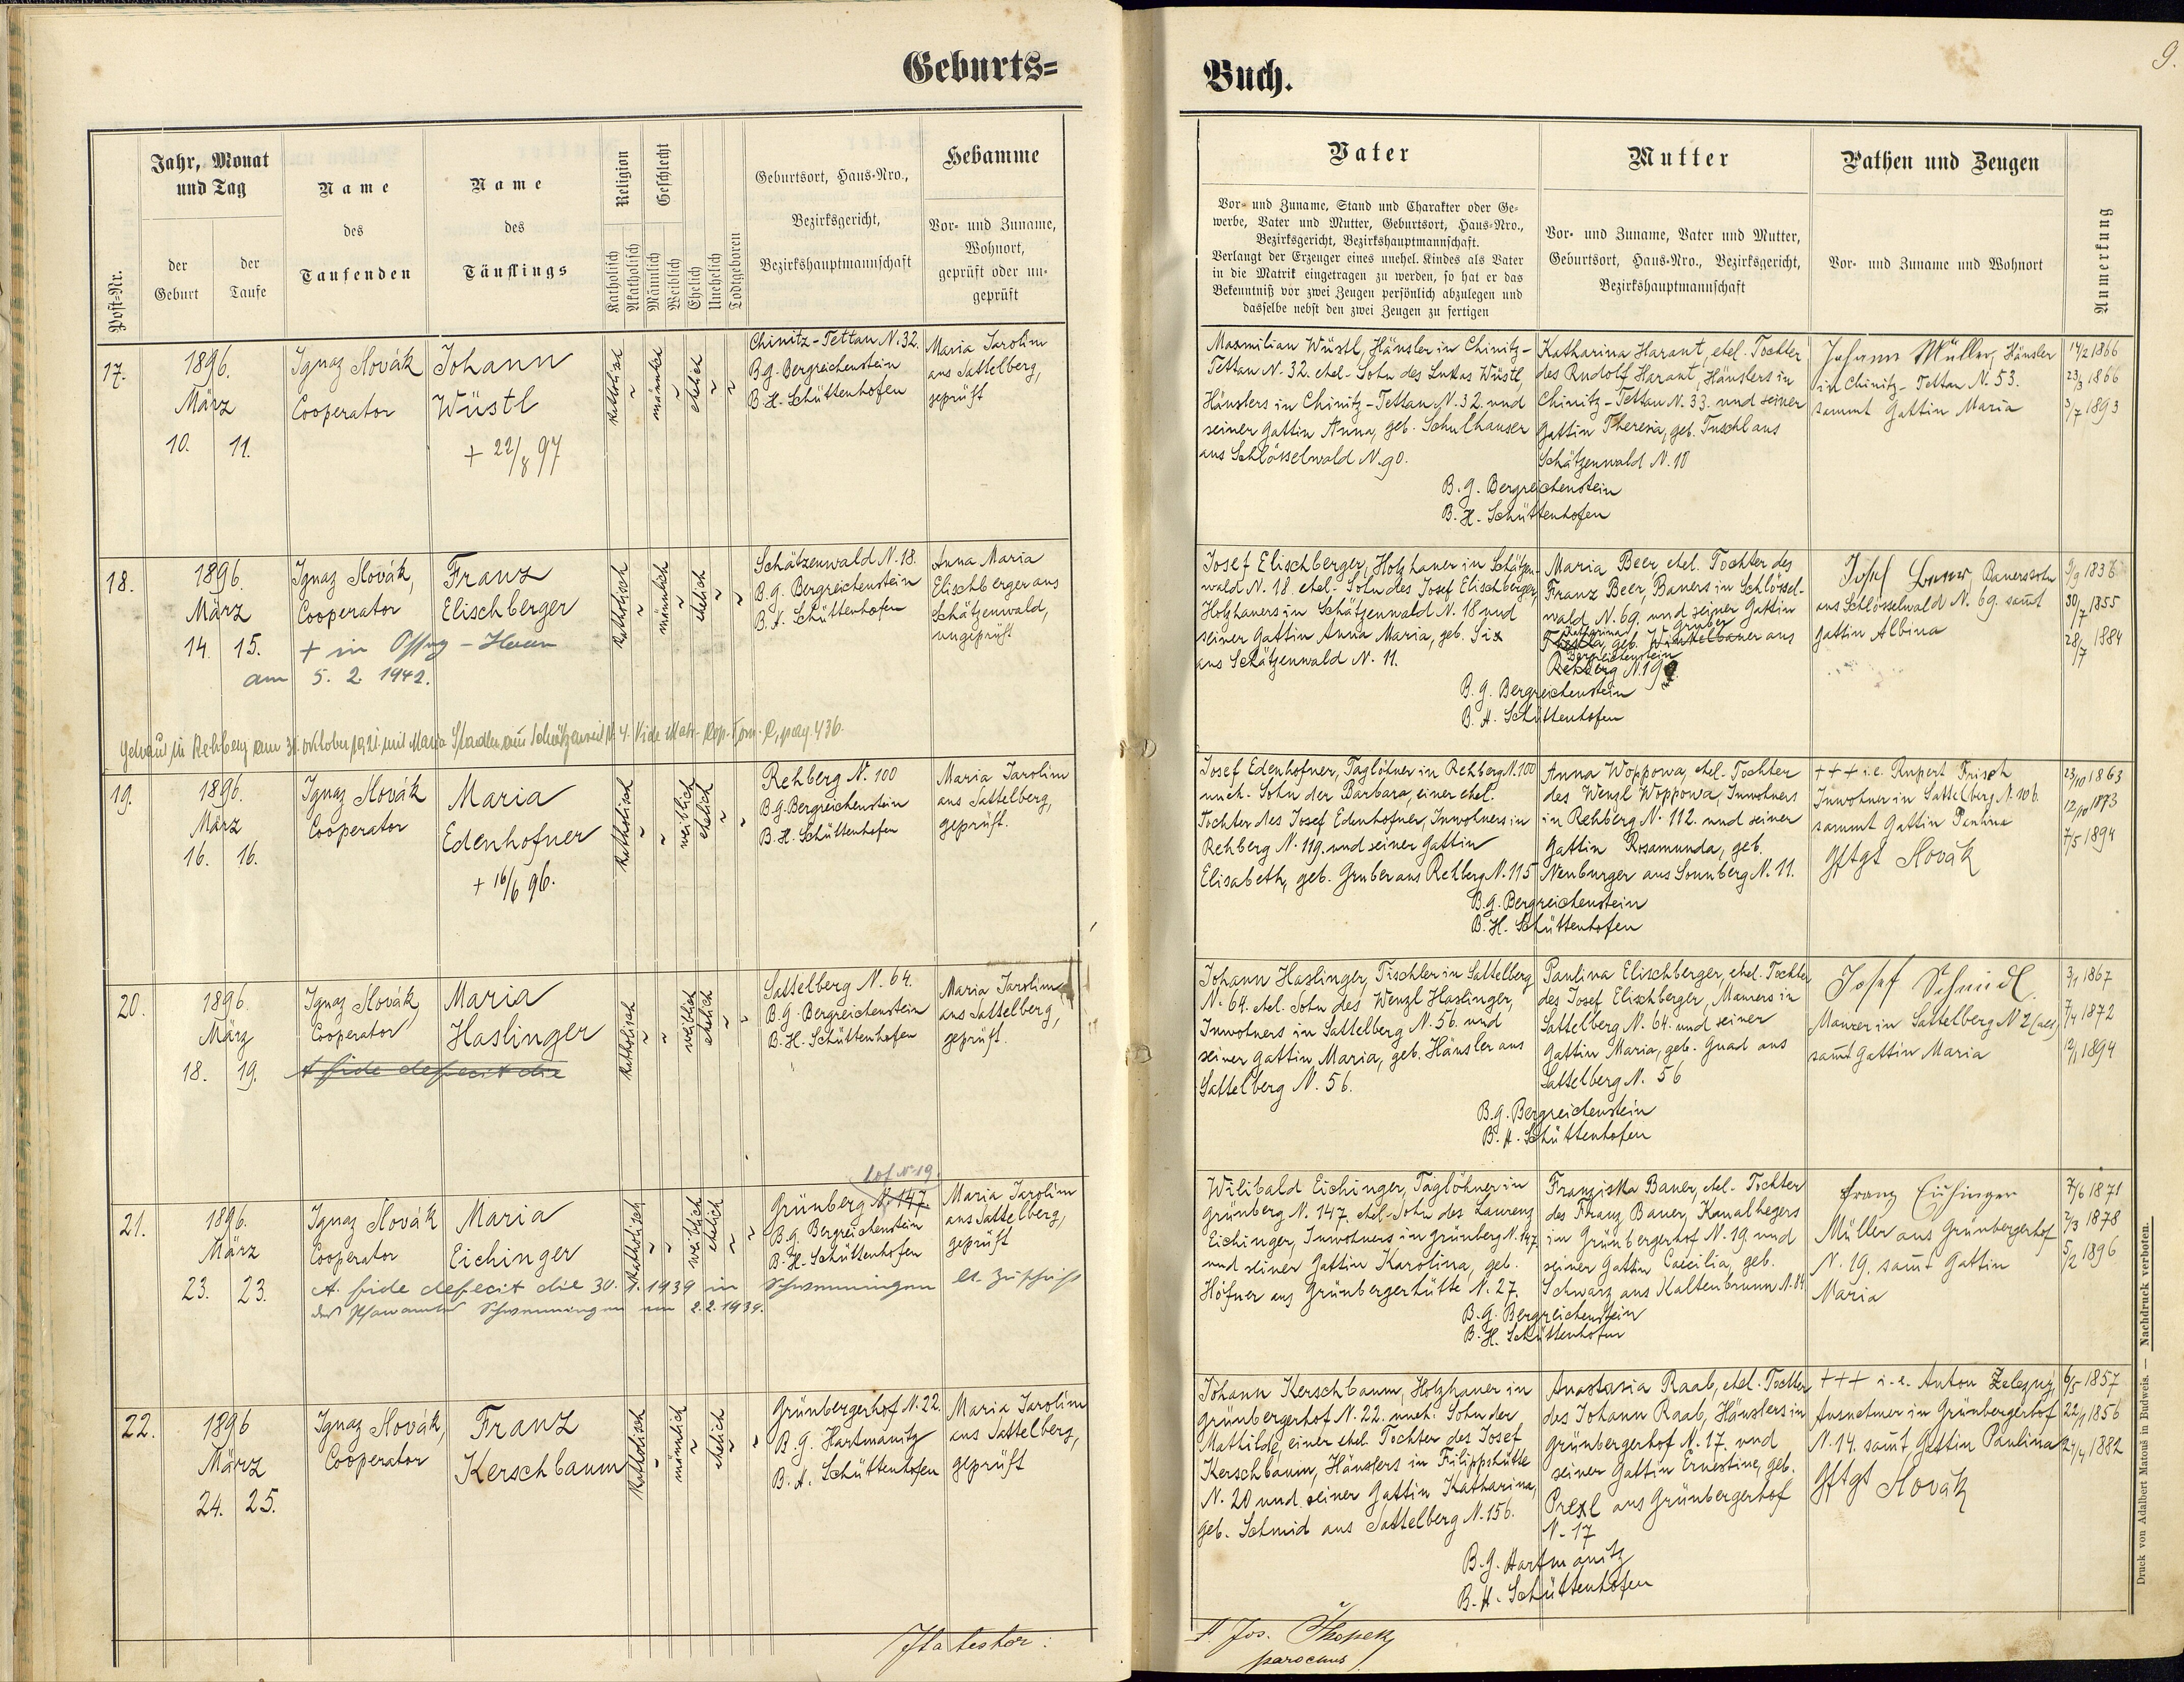 Geburts=
Buch.
9.
Post-Nr.
Jahr, Monat
und Tag
der
Geburt
der
Taufe
Name
des
Taufenden
Name
des
Täuflings
Religion
Katholisch
Akatholisch
Geschlecht
Männlich
Weiblich
Ehelich
Unehelich
Todtgeboren
Geburtsort, Haus-Nro.,
Bezirksgericht,
Bezirkshauptmannschaft
Hebamme
Vor- und Zuname,
Wohnort,
geprüft oder un-
geprüft
Vater
Vor- und Zuname, Stand und Charakter oder Ge-
werbe, Vater und Mutter, Geburtsort, Haus-Nro.,
Bezirksgericht, Bezirkshauptmannschaft.
Verlangt der Erzeuger eines unehel. Kindes als Vater
in die Matrik eingetragen zu werden, so hat er das
Bekenntniß vor zwei Zeugen persönlich abzulegen und
dasselbe nebst den zwei Zeugen zu fertigen
Mutter
Vor- und Zuname, Vater und Mutter,
Geburtsort, Haus-Nro., Bezirksgericht,
Bezirkshauptmannschaft
Pathen und Zeugen
Vor- und Zuname und Wohnort
Anmerkung
17.
1896.
März
10. 11.
Ignaz Slovák
Cooperator
Johann
Wüstl
+ 22/8 97
katholisch
männlich
ehelich
Chinitz-Tettau N. 32.
B.G. Bergreichenstein
B.H. Schüttenhofen
Maria Jarolim
aus Sattelberg,
geprüft
Maxmilian Wüstl, Häusler in Chinitz-
Tettau N. 32. ehel. Sohn des Lukas Wüstl,
Häuslers in Chinitz-Tettau N. 32. und
seiner Gattin Anna, geb. Schulhauser
aus Schlösselwald N. 90.
Katharina Harant, ehel. Tochter
des Rudolf Harant, Häuslers in
Chinitz-Tettau N. 33. und seiner
Gattin Theresia, geb. Tuschl aus
Schätzenwald N. 10
B.G. Bergreichenstein
B.H. Schüttenhofen
Johann Müller, Häusler
in Chinitz-Tettau N. 53.
sammt Gattin Maria
14/2 1866
23/3 1866
3/7 1893
18.
1896.
März
14. 15.
Ignaz Slovák,
Cooperator
Franz
Elischberger
+ in
am 5. 2. 1942.
katholisch
männlich
ehelich
Schätzenwald N. 18.
B.G. Bergreichenstein
B.H. Schüttenhofen
Anna Maria
Elischberger aus
Schätzenwald,
ungeprüft
Josef Elischberger, Holzhauer in Schätzen-
wald N. 18. ehel. Sohn des Josef Elischberger,
Holzhauers in Schätzenwald N. 18 und
seiner Gattin Anna Maria, geb. Six
aus Schätzenwald N. 11.
Maria Beer, ehel. Tochter des
Franz Beer, Bauers in Schlössel-
wald N. 69. und seiner Gattin
Katharina Gruber
geb. Winkelbauer aus
Bergreichenstein
Rehberg N. 19
B.G. Bergreichenstein
B.H. Schüttenhofen
Josef Bauerssohn
aus Schlösselwald N. 69. samt
Gattin Albina
9/9 1838
30/7 1855
28/7 1884
Getraut in Rehberg am 31. Oktober 1921 mit Maria Stadler aus N. 4. Vide Matr. Cop. Tom. pag. 436.
19.
1896.
März
16. 16.
Ignaz Slovák
Cooperator
Maria
Edenhofner
+ 16/6 96.
katholisch
weiblich
ehelich
Rehberg N. 100
B.G. Bergreichenstein
B.H. Schüttenhofen
Maria Jarolim
aus Sattelberg,
geprüft.
Josef Edenhofner, Taglöhner in Rehberg N. 100
uneh. Sohn der Barbara, einer ehel.
Tochter des Josef Edenhofner, Inwohners in
Rehberg N. 119. und seiner Gattin
Elisabeth, geb. Gruber aus Rehberg N. 115
Anna Woppowa, ehel. Tochter
des Wenzl Woppowa, Inwohners
in Rehberg N. 112. und seiner
Gattin Rosamunda, geb.
Neuburger aus Sonnberg N. 11.
B.G. Bergreichenstein
B.H. Schüttenhofen
+++ i.e. Rupert Frisch
Inwohner in Sattelberg N. 106.
sammt Gattin Paulina
gftgt Slovák
23/10 1863
12/10 1873
7/5 1894
20.
1896.
März
18. 19.
Ignaz Slovák,
Cooperator
Maria
Haslinger
A fide defecit die
katholisch
weiblich
ehelich
Sattelberg N. 64.
B.G. Bergreichenstein
B.H. Schüttenhofen
Maria Jarolim
aus Sattelberg,
geprüft.
Johann Haslinger, Tischler in Sattelberg
N. 64. ehel. Sohn des Wenzl Haslinger,
Inwohners in Sattelberg N. 56. und
seiner Gattin Maria, geb. Häusler aus
Sattelberg N. 56.
Paulina Elischberger, ehel. Tochter
des Josef Elischberger, Maurers in
Sattelberg N. 64. und seiner
Gattin Maria, geb. Gnad aus
Sattelberg N. 56
B.G. Bergreichenstein
B.H. Schüttenhofen
Josef Schmidl
Maurer in Sattelberg N 2
samt Gattin Maria
3/1 1867
7/4 1872
12/1 1894
21.
1896.
März
23. 23.
Ignaz Slovák
Cooperator
Maria
Eichinger
A. fide defecit die 30. 1. 1939 in Schwenningen lt. Zuschrift
des Pfarramtes Schwenningen vom 2. 2. 1939.
katholisch
weiblich
ehelich
hof N 19.
Grünberg N. 147.
B.G. Bergreichenstein
B.H. Schüttenhofen
Maria Jarolim
aus Sattelberg,
geprüft
Wilibald Eichinger, Taglöhner in
Grünberg N. 147. ehel. Sohn des Laurenz
Eichinger, Inwohners in Grünberg N. 147
und seiner Gattin Karolina, geb.
Höfner aus Grünbergerhütte N. 27.
Franziska Bauer, ehel. Tochter
des Franz Bauer, Kanalhegers
in Grünbergerhof N. 19. und
seiner Gattin Caecilia, geb.
Schwarz aus Kaltenbrunn N. 84
B.G. Bergreichenstein
B.H. Schüttenhofen
Franz Eichinger
Müller aus Grünbergerhof
N. 19. samt Gattin
Maria
7/6 1871
2/3 1878
5/2 1896
22.
1896
März
24. 25.
Ignaz Slovák,
Cooperator
Franz
Kerschbaum
katholisch
männlich
ehelich
Grünbergerhof N. 22.
B.G. Hartmanitz
B.H. Schüttenhofen
Maria Jarolim
aus Sattelberg,
geprüft
Johann Kerschbaum, Holzhauer in
Grünbergerhof N. 22. uneh. Sohn der
Mathilde, einer ehel. Tochter des Josef
Kerschbaum, Häuslers in Filippshütte
N. 20 und seiner Gattin Katharina,
geb. Schmid aus Sattelberg N. 156.
Anastasia Raab, ehel. Tochter
des Johann Raab, Häuslers in
Grünbergerhof N. 17. und
seiner Gattin Ernestine, geb.
Prexl aus Grünbergerhof
N. 17
B.G. Hartmanitz
B.H. Schüttenhofen
+++ i.e. Anton Železný,
Ausnehmer in Grünbergerhof
N. 14. samt Gattin Paulina
gftgt Slovák
6/5 1857
22/1 1856
24/4 1882
Ita testor:
P. Jos. Skopek
parochus
Druck von Adalbert Matouš in Budweis. — Nachdruck verboten.